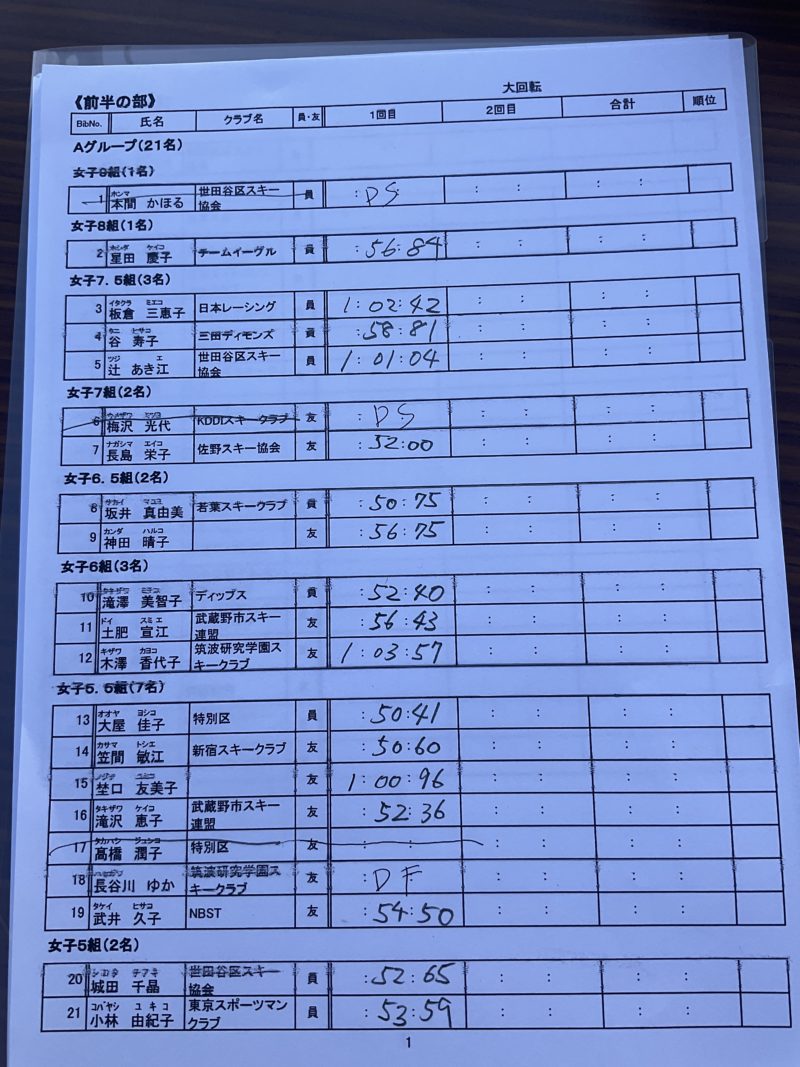 大回転
《前半の部》
BibNo. 氏名 クラブ名 員・友 1回目 2回目 合計 順位
Aグループ(21名)
女子9組(1名)
ホンマ
1 本間 かほる 世田谷区スキー協会 員 : DS : : : :
女子8組(1名)
ホシダ ケイコ
2 星田 慶子 チームイーグル 員 : 56:84 : : : :
女子7.5組(3名)
イタクラ ミエコ
3 板倉 三恵子 日本レーシング 員 1:02:42 : : : :
タニ ヒサコ
4 谷 寿子 三田ディモンズ 員 : 58:81 : : : :
ツジ エ
5 辻 あき江 世田谷区スキー協会 員 1:01:04 : : : :
女子7組(2名)
ウメザワ ミツヨ
6 梅沢 光代 KDDIスキークラブ 友 : DS : : : :
ナガシマ エイコ
7 長島 栄子 佐野スキー協会 友 : 52:00 : : : :
女子6.5組(2名)
サカイ マユミ
8 坂井 真由美 若葉スキークラブ 員 : 50:75 : : : :
カンダ ハルコ
9 神田 晴子 友 : 56:75 : : : :
女子6組(3名)
タキザワ ミチコ
10 滝澤 美智子 ディップス 員 : 52:40 : : : :
ドイ スミエ
11 土肥 宣江 武蔵野市スキー連盟 友 : 56:43 : : : :
キザワ カヨコ
12 木澤 香代子 筑波研究学園スキークラブ 友 1:03:57 : : : :
女子5.5組(7名)
オオヤ ヨシコ
13 大屋 佳子 特別区 員 : 50:41 : : : :
カサマ トシエ
14 笠間 敏江 新宿スキークラブ 友 : 50:60 : : : :
15 埜口 友美子 友 1:00:96 : : : :
タキザワ ケイコ
16 滝沢 恵子 武蔵野市スキー連盟 友 : 52:36 : : : :
タカハシ ジュンコ
17 高橋 潤子 特別区 友 : : : : : :
ハセガワ
18 長谷川 ゆか 筑波研究学園スキークラブ 友 : DF : : : :
タケイ ヒサコ
19 武井 久子 NBST 友 : 54:50 : : : :
女子5組(2名)
シロタ チアキ
20 城田 千晶 世田谷区スキー協会 員 : 52:65 : : : :
コバヤシ ユキコ
21 小林 由紀子 東京スポーツマンクラブ 員 : 53:59 : : : :
1